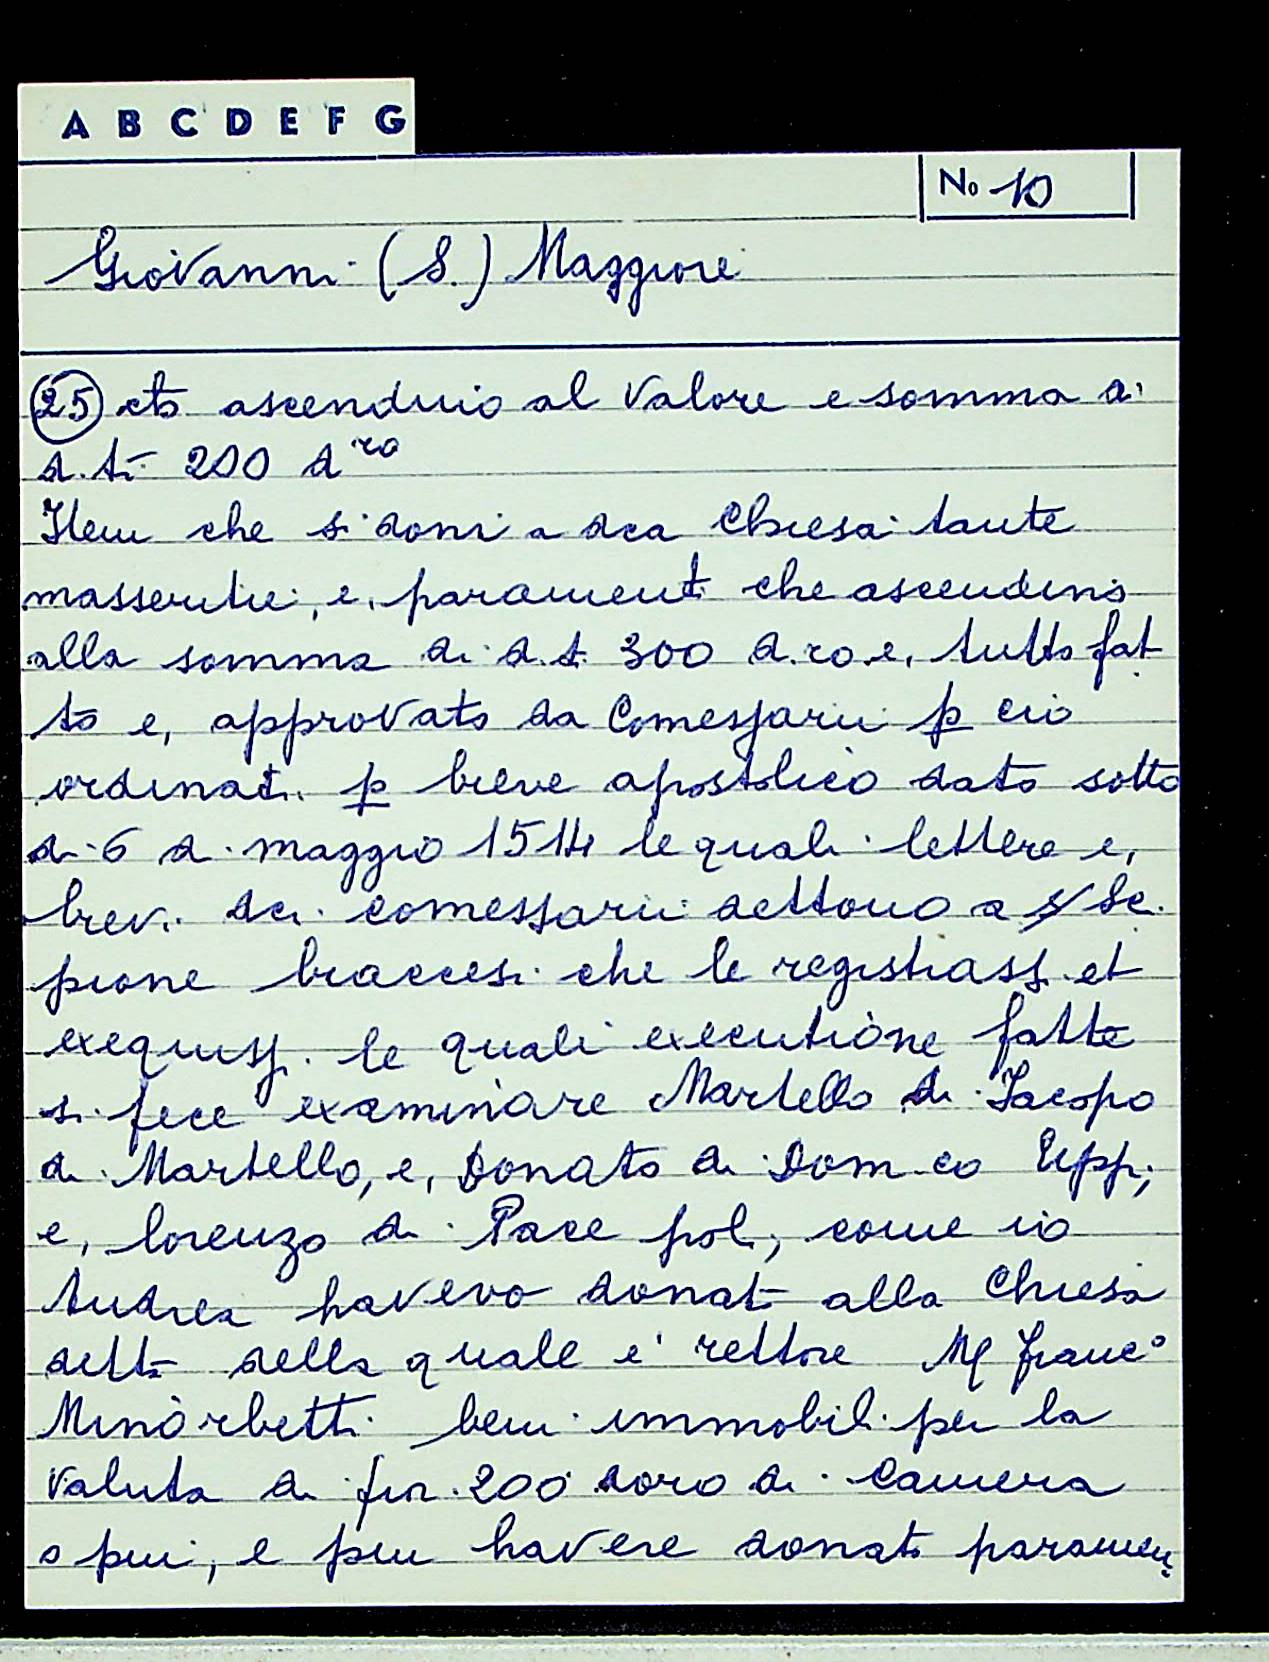 A B C D E F G
No 10
Giovanni (S.) Maggiore
(25) cto ascenduio al valore e somma di
d. ti 200 dro
Item che si doni a dca Chiesa tante
masseritie, e, parament che ascendino
alla somma di d. t. 300 d.ro.e, tutto fat
to e, approvato da Comessarii p ciò
ordinati. p breve apostolico dato sotto
di 6 di maggio 1514 le quali lettere e,
brevi. dci comessarii dettono a s Sci
pione braccesi che le registrass. et
exequiss. le quali executione fatte
si fece examinare Martello di Jacopo
di Martello, e, Donato di Dom.co
e, lorenzo di Pace pol, come io
Andrea havevo donati alla Chiesa
detta della quale e' rettore M franco
Minorbetti beni immobili per la
valuta di fior. 200 doro di Camera
o piu, e piu havere donato paramen